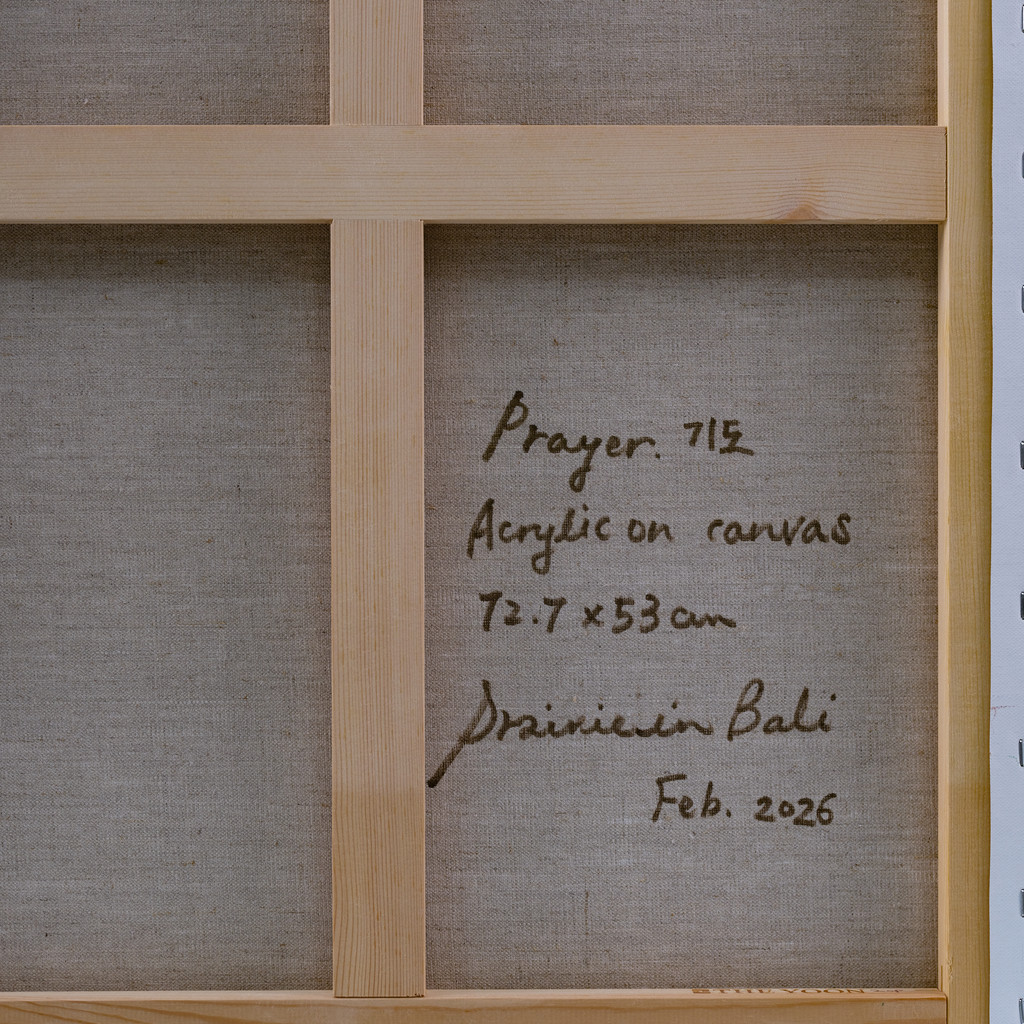 Prayer. 기도
Acrylic on canvas
72.7 x 53 cm
Prairie in Bali
Feb. 2026
THE YOON